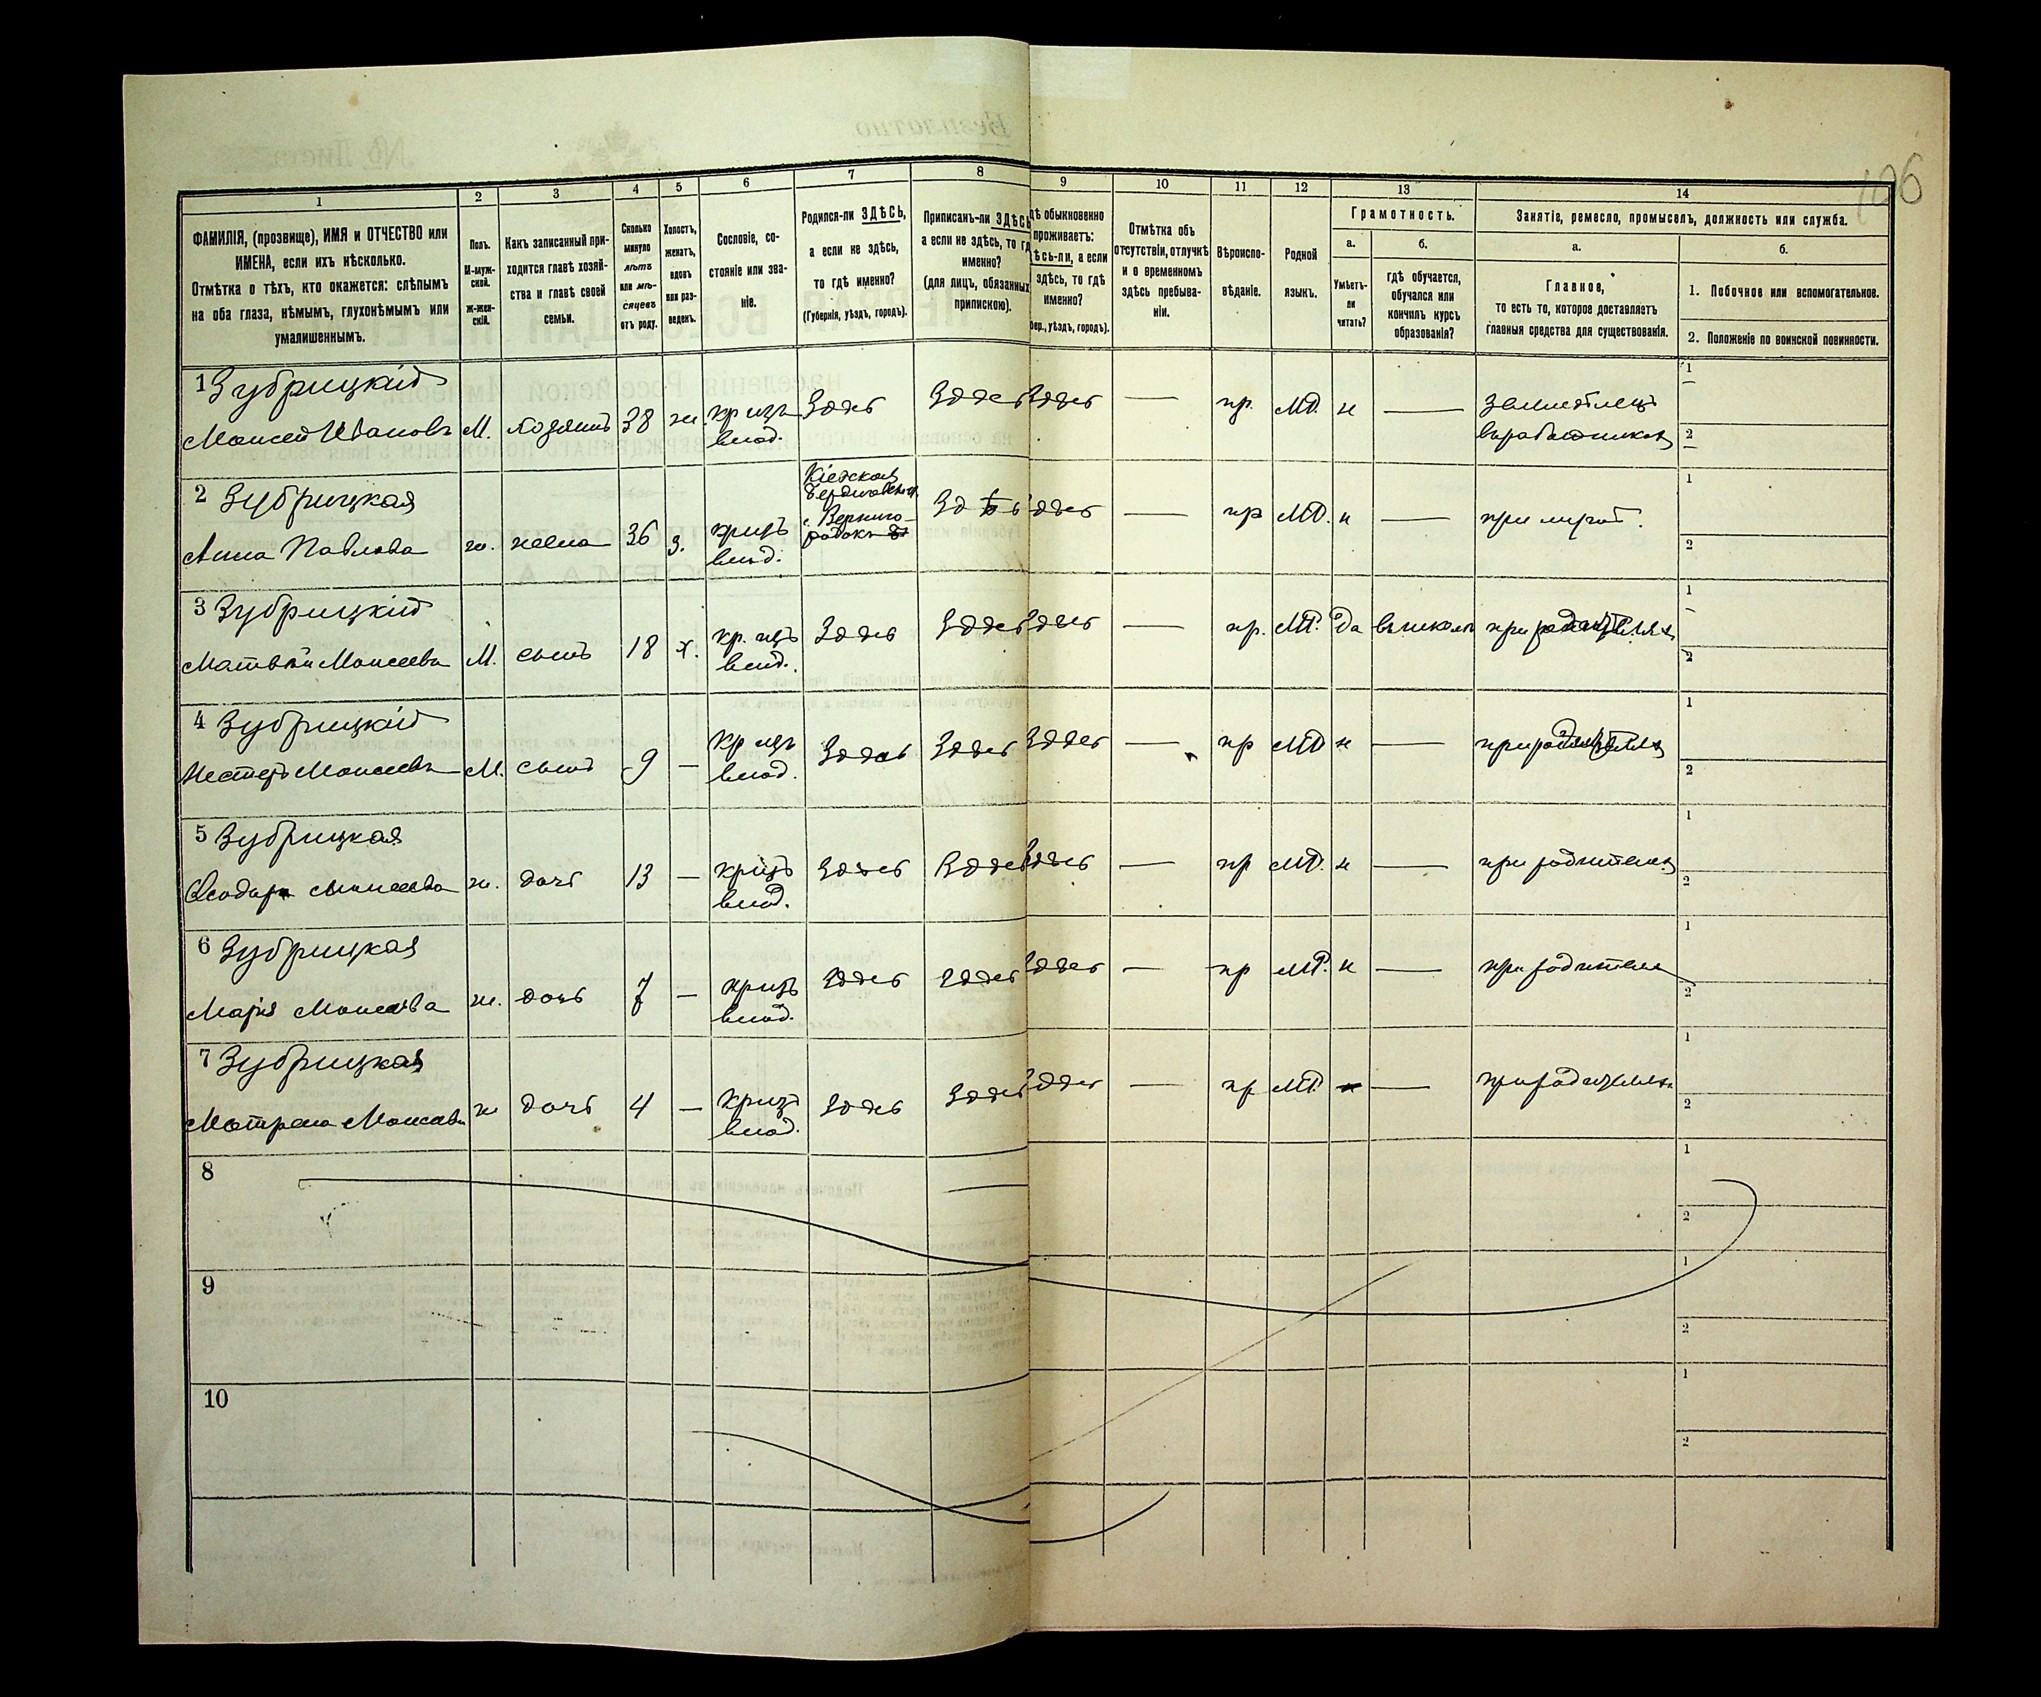 106
1 2 3 4 5 6 7 8 9 10 11 12 13 14
ФАМИЛІЯ, (прозвище), ИМЯ и ОТЧЕСТВО или
ИМЕНА, если ихъ нѣсколько.
Отмѣтка о тѣхъ, кто окажется: слѣпымъ
на оба глаза, нѣмымъ, глухонѣмымъ или
умалишеннымъ.
Полъ.
М-муж-
ской.
Ж-жен-
скій.
Какъ записанный при-
ходится главѣ хозяй-
ства и главѣ своей
семьи.
Сколько
минуло
лѣтъ
или мѣ-
сяцевъ
отъ роду.
Холостъ,
женатъ,
вдовъ
или раз-
веденъ.
Сословіе, со-
стояніе или зва-
ніе.
Родился-ли ЗДѢСЬ,
а если не здѣсь,
то гдѣ именно?
(Губернія, уѣздъ, городъ).
Приписанъ-ли ЗДѢСЬ
а если не здѣсь, то гд
именно?
(для лицъ, обязанныхъ
припискою).
дѣ обыкновенно
проживаетъ:
ѣсь-ли, а если
здѣсь, то гдѣ
именно?
бер., уѣздъ, городъ).
Отмѣтка объ
отсутствіи, отлучкѣ
и о временномъ
здѣсь пребыва-
ніи.
Вѣроиспо-
вѣданіе.
Родной
языкъ.
Грамотность.
а.
Умѣетъ-
ли
читать?
б.
гдѣ обучается,
обучался или
кончилъ курсъ
образованія?
Занятіе, ремесло, промыселъ, должность или служба.
а.
Главное,
то есть то, которое доставляетъ
главныя средства для существованія.
б.
1. Побочное или вспомогательное.
2. Положеніе по воинской повинности.
1 Зубрицкій
Моисей Ивановъ М. хозяинъ 38 ж. кр. изъ
влад. Здѣсь Здѣсь Здѣсь — пр. МР. н —
1
2
2 Зубрицкая
Анна Павлова ж. жена 36 з. кр изъ
влад.
Кіевская
с. Верхиго-
родокъ
Здѣсь Здѣсь — пр МР. н — при мужѣ.
1
2
3 Зубрицкій
Матвѣй Моисеевъ М. сынъ 18 х. кр. изъ
влад. Здѣсь Здѣсь Здѣсь — пр. МР. Да въ школѣ при родителяхъ
1
2
4 Зубрицкій
Нестеръ Моисеевъ М. сынъ 9 — кр изъ
влад. Здѣсь Здѣсь Здѣсь — пр МР н — при родителяхъ
1
2
5 Зубрицкая
Моисеева ж. дочь 13 — кр изъ
влад. Здѣсь Здѣсь Здѣсь — пр МР. н — при родителях
1
2
6 Зубрицкая
Марія Моисеева ж. дочь 7 — кр изъ
влад. Здѣсь Здѣсь Здѣсь — пр МР. н — при родителя
1
2
7 Зубрицкая
Мотрена Моисеева ж дочь 4 — кр изъ
влад. Здѣсь Здѣсь Здѣсь — пр МР. н — при родителях
1
2
8
1
2
9
1
2
10
1
2